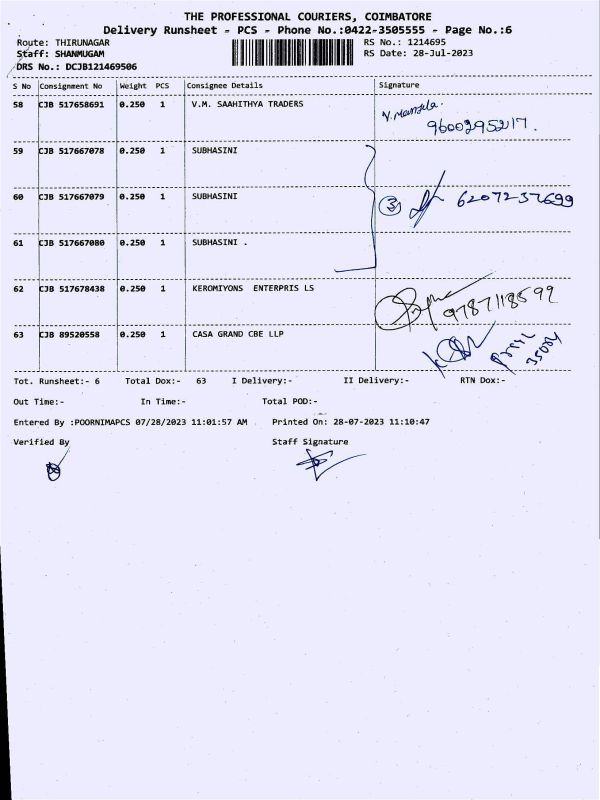 THE PROFESSIONAL COURIERS, COIMBATORE
Delivery Runsheet - PCS - Phone No.:0422-3505555 - Page No.:6
Route: THIRUNAGAR RS No.: 1214695
Staff: SHANMUGAM RS Date: 28-Jul-2023
DRS No.: DCJB121469506
S No Consignment No Weight PCS Consignee Details Signature
58 CJB 517658691 0.250 1 V.M. SAAHITHYA TRADERS V. Manjula.
9600295217.
59 CJB 517667078 0.250 1 SUBHASINI
60 CJB 517667079 0.250 1 SUBHASINI 3 6207237699
61 CJB 517667080 0.250 1 SUBHASINI .
62 CJB 517678438 0.250 1 KEROMIYONS ENTERPRIS LS 9787118592
63 CJB 89520558 0.250 1 CASA GRAND CBE LLP
Tot. Runsheet:- 6 Total Dox:- 63 I Delivery:- II Delivery:- RTN Dox:-
Out Time:- In Time:- Total POD:-
Entered By :POORNIMAPCS 07/28/2023 11:01:57 AM Printed On: 28-07-2023 11:10:47
Verified By Staff Signature